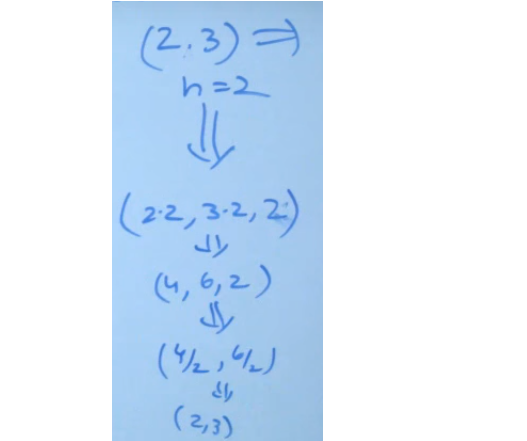 (2.3) ⇒
n=2
⇓
(2·2, 3·2, 2)
⇓
(4, 6, 2)
⇓
(4/2, 6/2)
⇓
(2,3)